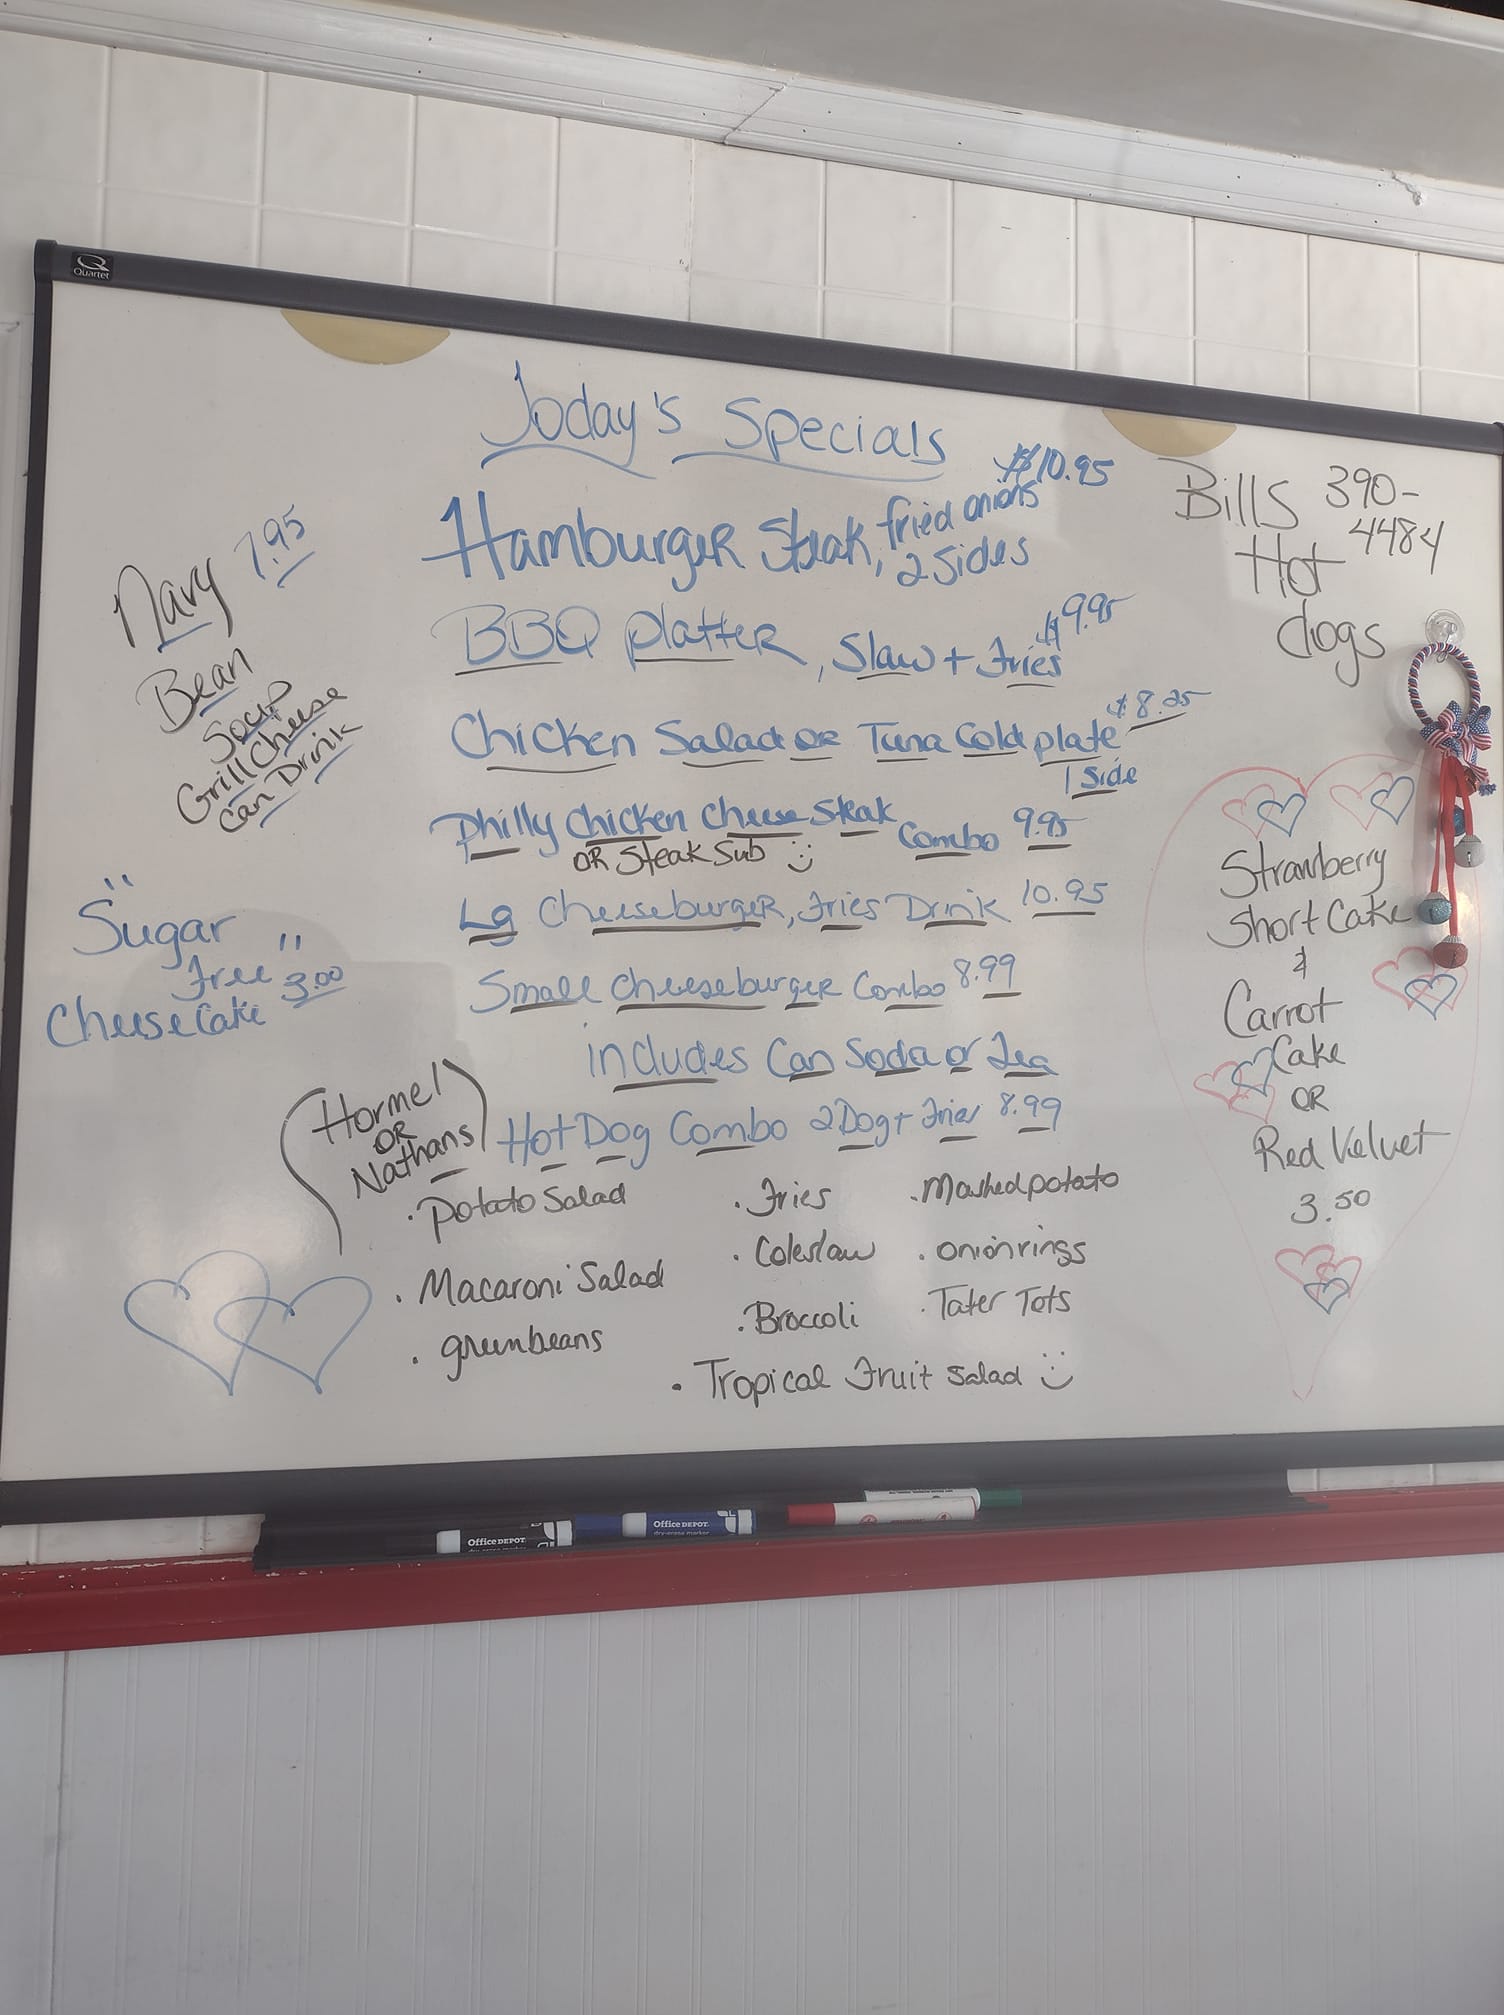 Quartet
Today's Specials
$10.95
Hamburger Steak, fried onions
2 sides
BBQ platter, Slaw + Fries $9.95
Chicken Salad or Tuna Cold plate $8.25
1 Side
Philly Chicken Cheese Steak Combo 9.95
OR Steak Sub
Lg Cheeseburger, Fries Drink 10.95
Small Cheeseburger Combo 8.99
includes Can Soda or Tea
Hot Dog Combo 2 Dog + Fries 8.99
(Hormel
OR
Nathans)
. Potato Salad
. Macaroni Salad
. green beans
. Fries
. Coleslaw
. Broccoli
. Mashed potato
. onion rings
. Tater Tots
. Tropical Fruit Salad
Navy 7.95
Bean
Soup
Grill Cheese
Can Drink
"Sugar
Free" 3.00
Cheese Cake
Bills 390-
4484
Hot
dogs
Strawberry
Short Cake
&
Carrot
Cake
OR
Red Velvet
3.50
Office DEPOT
Office DEPOT
dry-erase marker